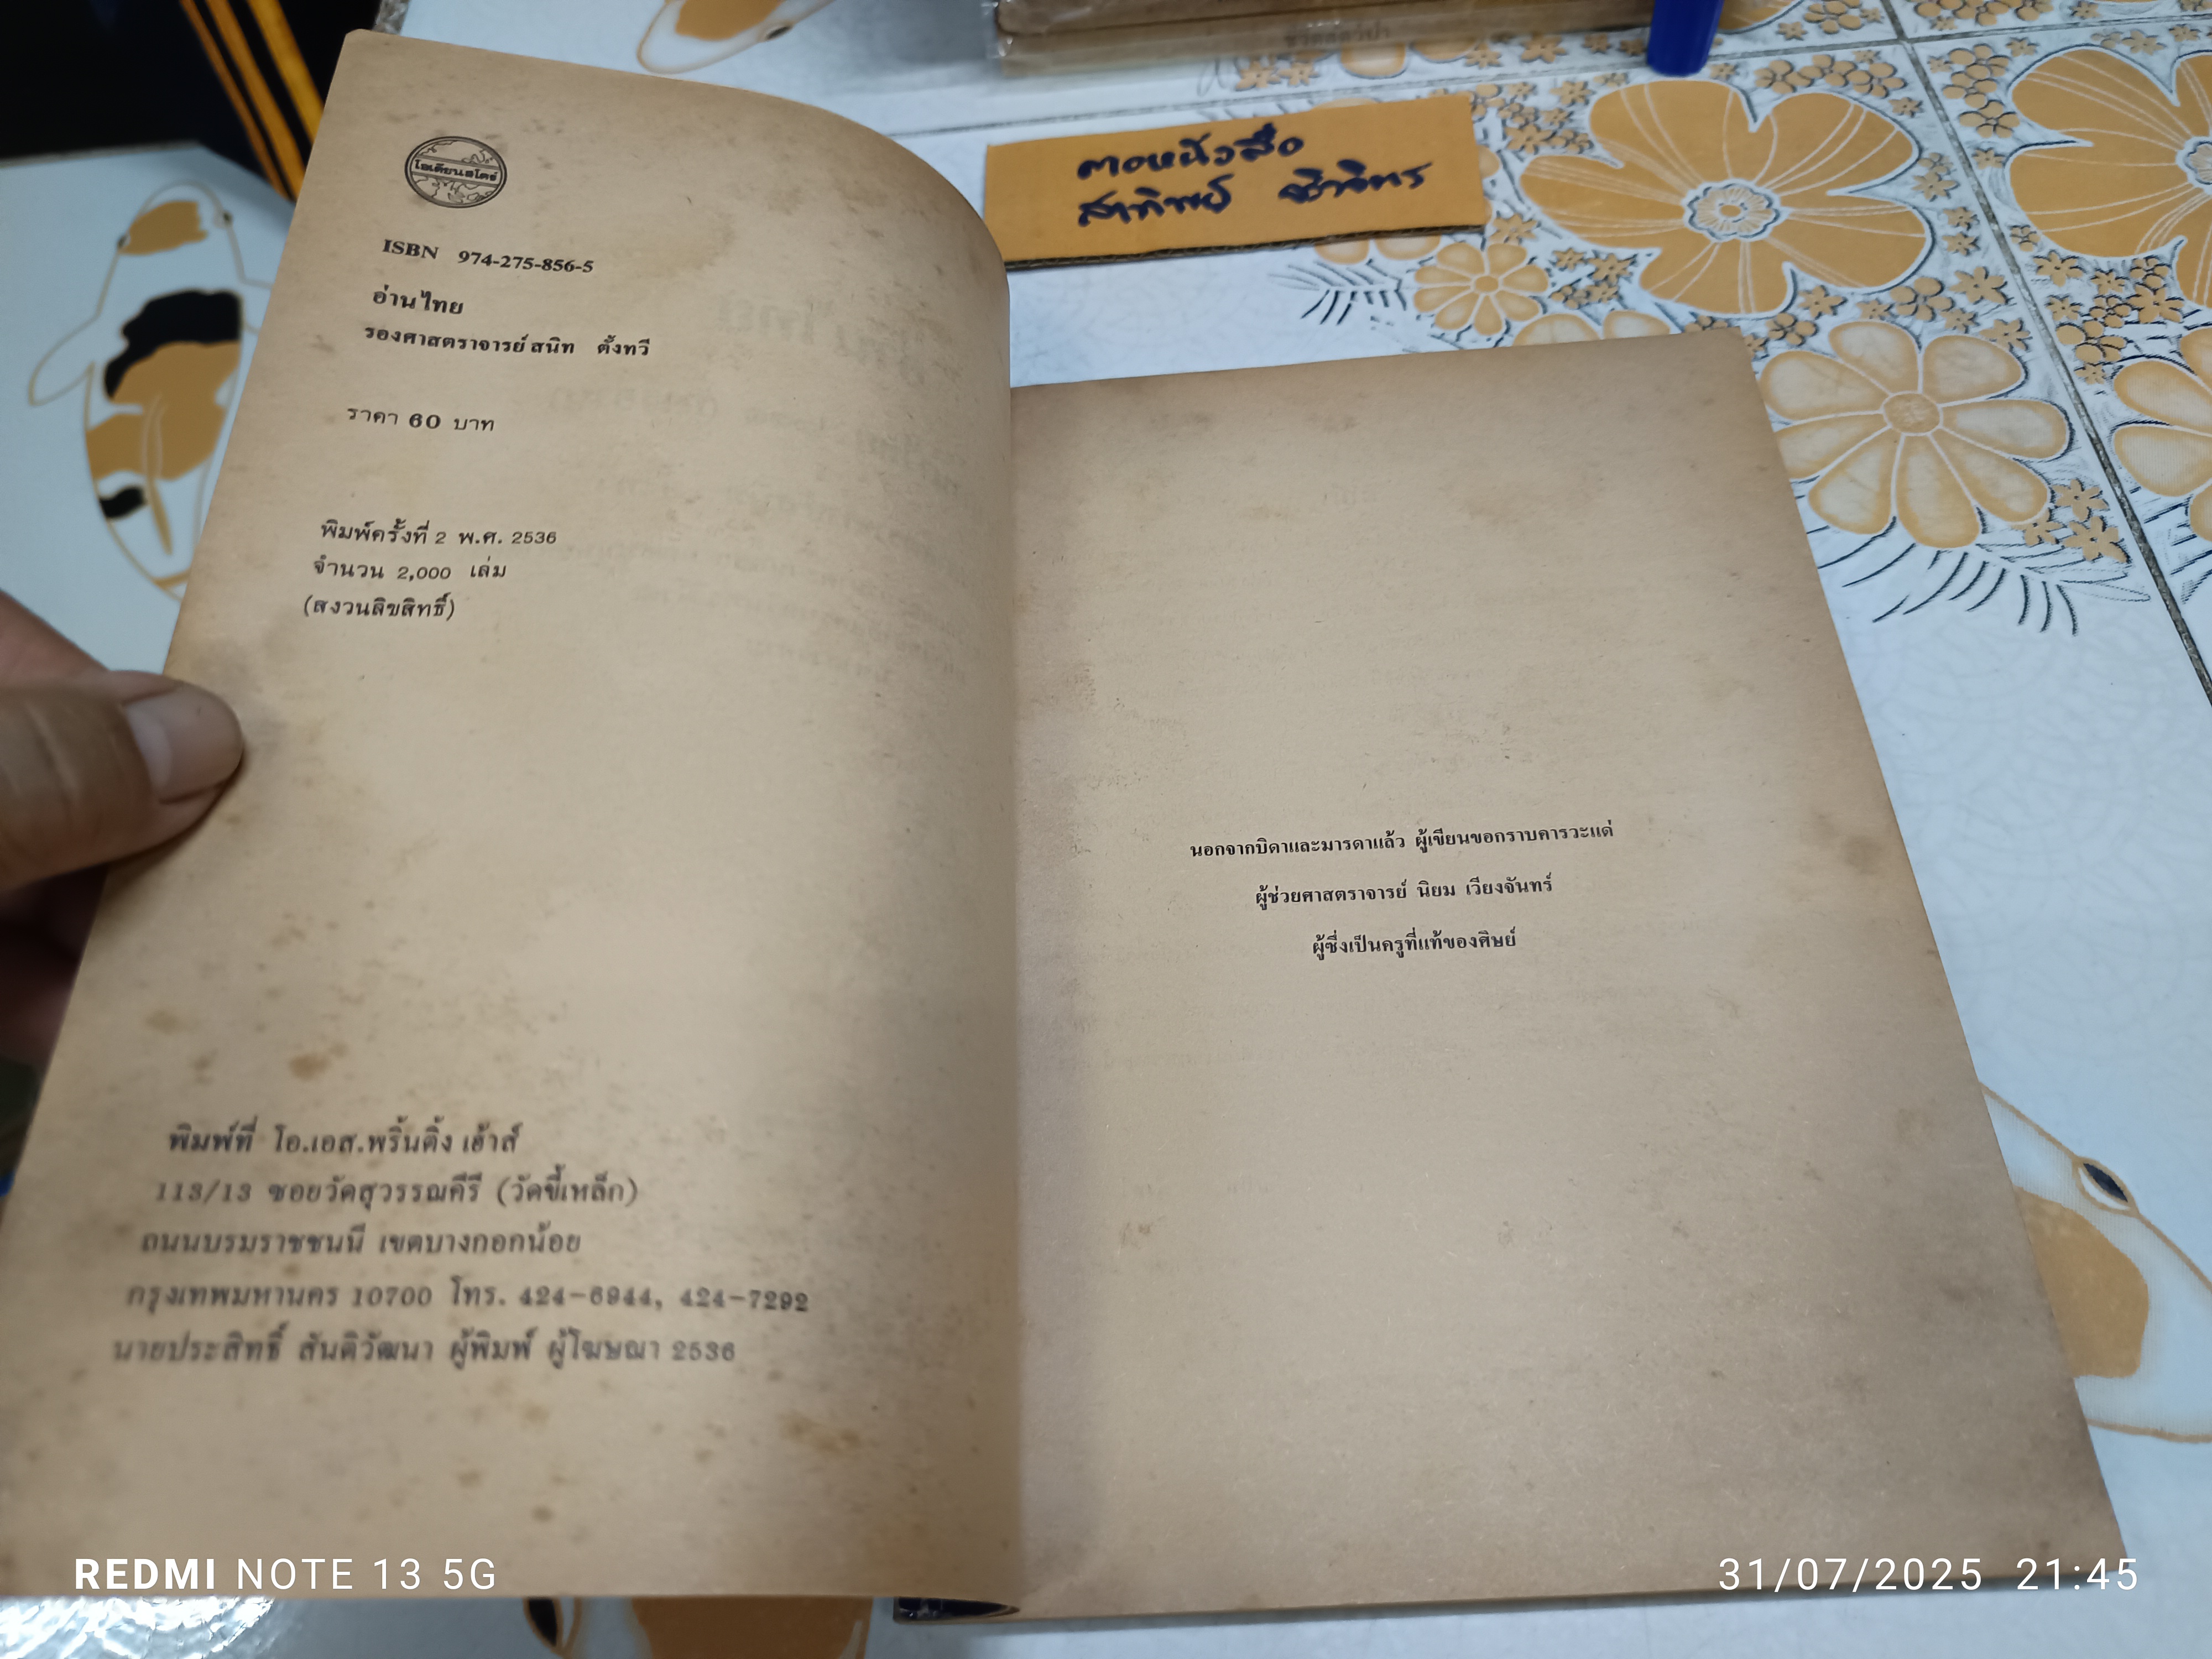 โอเดียนสโตร์
ISBN 974-275-856-5
อ่านไทย
รองศาสตราจารย์ สนิท ตั้งทวี
ราคา 60 บาท
พิมพ์ครั้งที่ 2 พ.ศ. 2536
จำนวน 2,000 เล่ม
(สงวนลิขสิทธิ์)
พิมพ์ที่ โอ.เอส.พริ้นติ้ง เฮ้าส์
113/13 ซอยวัดสุวรรณคีรี (วัดขี้เหล็ก)
ถนนบรมราชชนนี เขตบางกอกน้อย
กรุงเทพมหานคร 10700 โทร. 424-6944, 424-7292
นายประสิทธิ์ สันติวัฒนา ผู้พิมพ์ ผู้โฆษณา 2536
นอกจากบิดาและมารดาแล้ว ผู้เขียนขอกราบคารวะแด่
ผู้ช่วยศาสตราจารย์ นิยม เวียงจันทร์
ผู้ซึ่งเป็นครูที่แท้ของศิษย์
REDMI NOTE 13 5G
31/07/2025 21:45